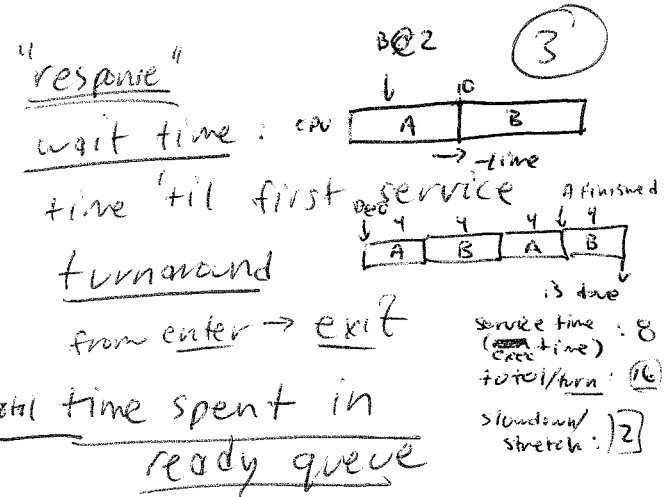 "response"
wait time :
time 'til first service
turnaround
from enter → exit
total time spent in
ready queue
B@2
3
10
CPU A B
→ time
A finished
4 4 4 4
A B A B
B done
service time : 8
(exec time)
total/turn : 16
slowdown/
stretch : 2